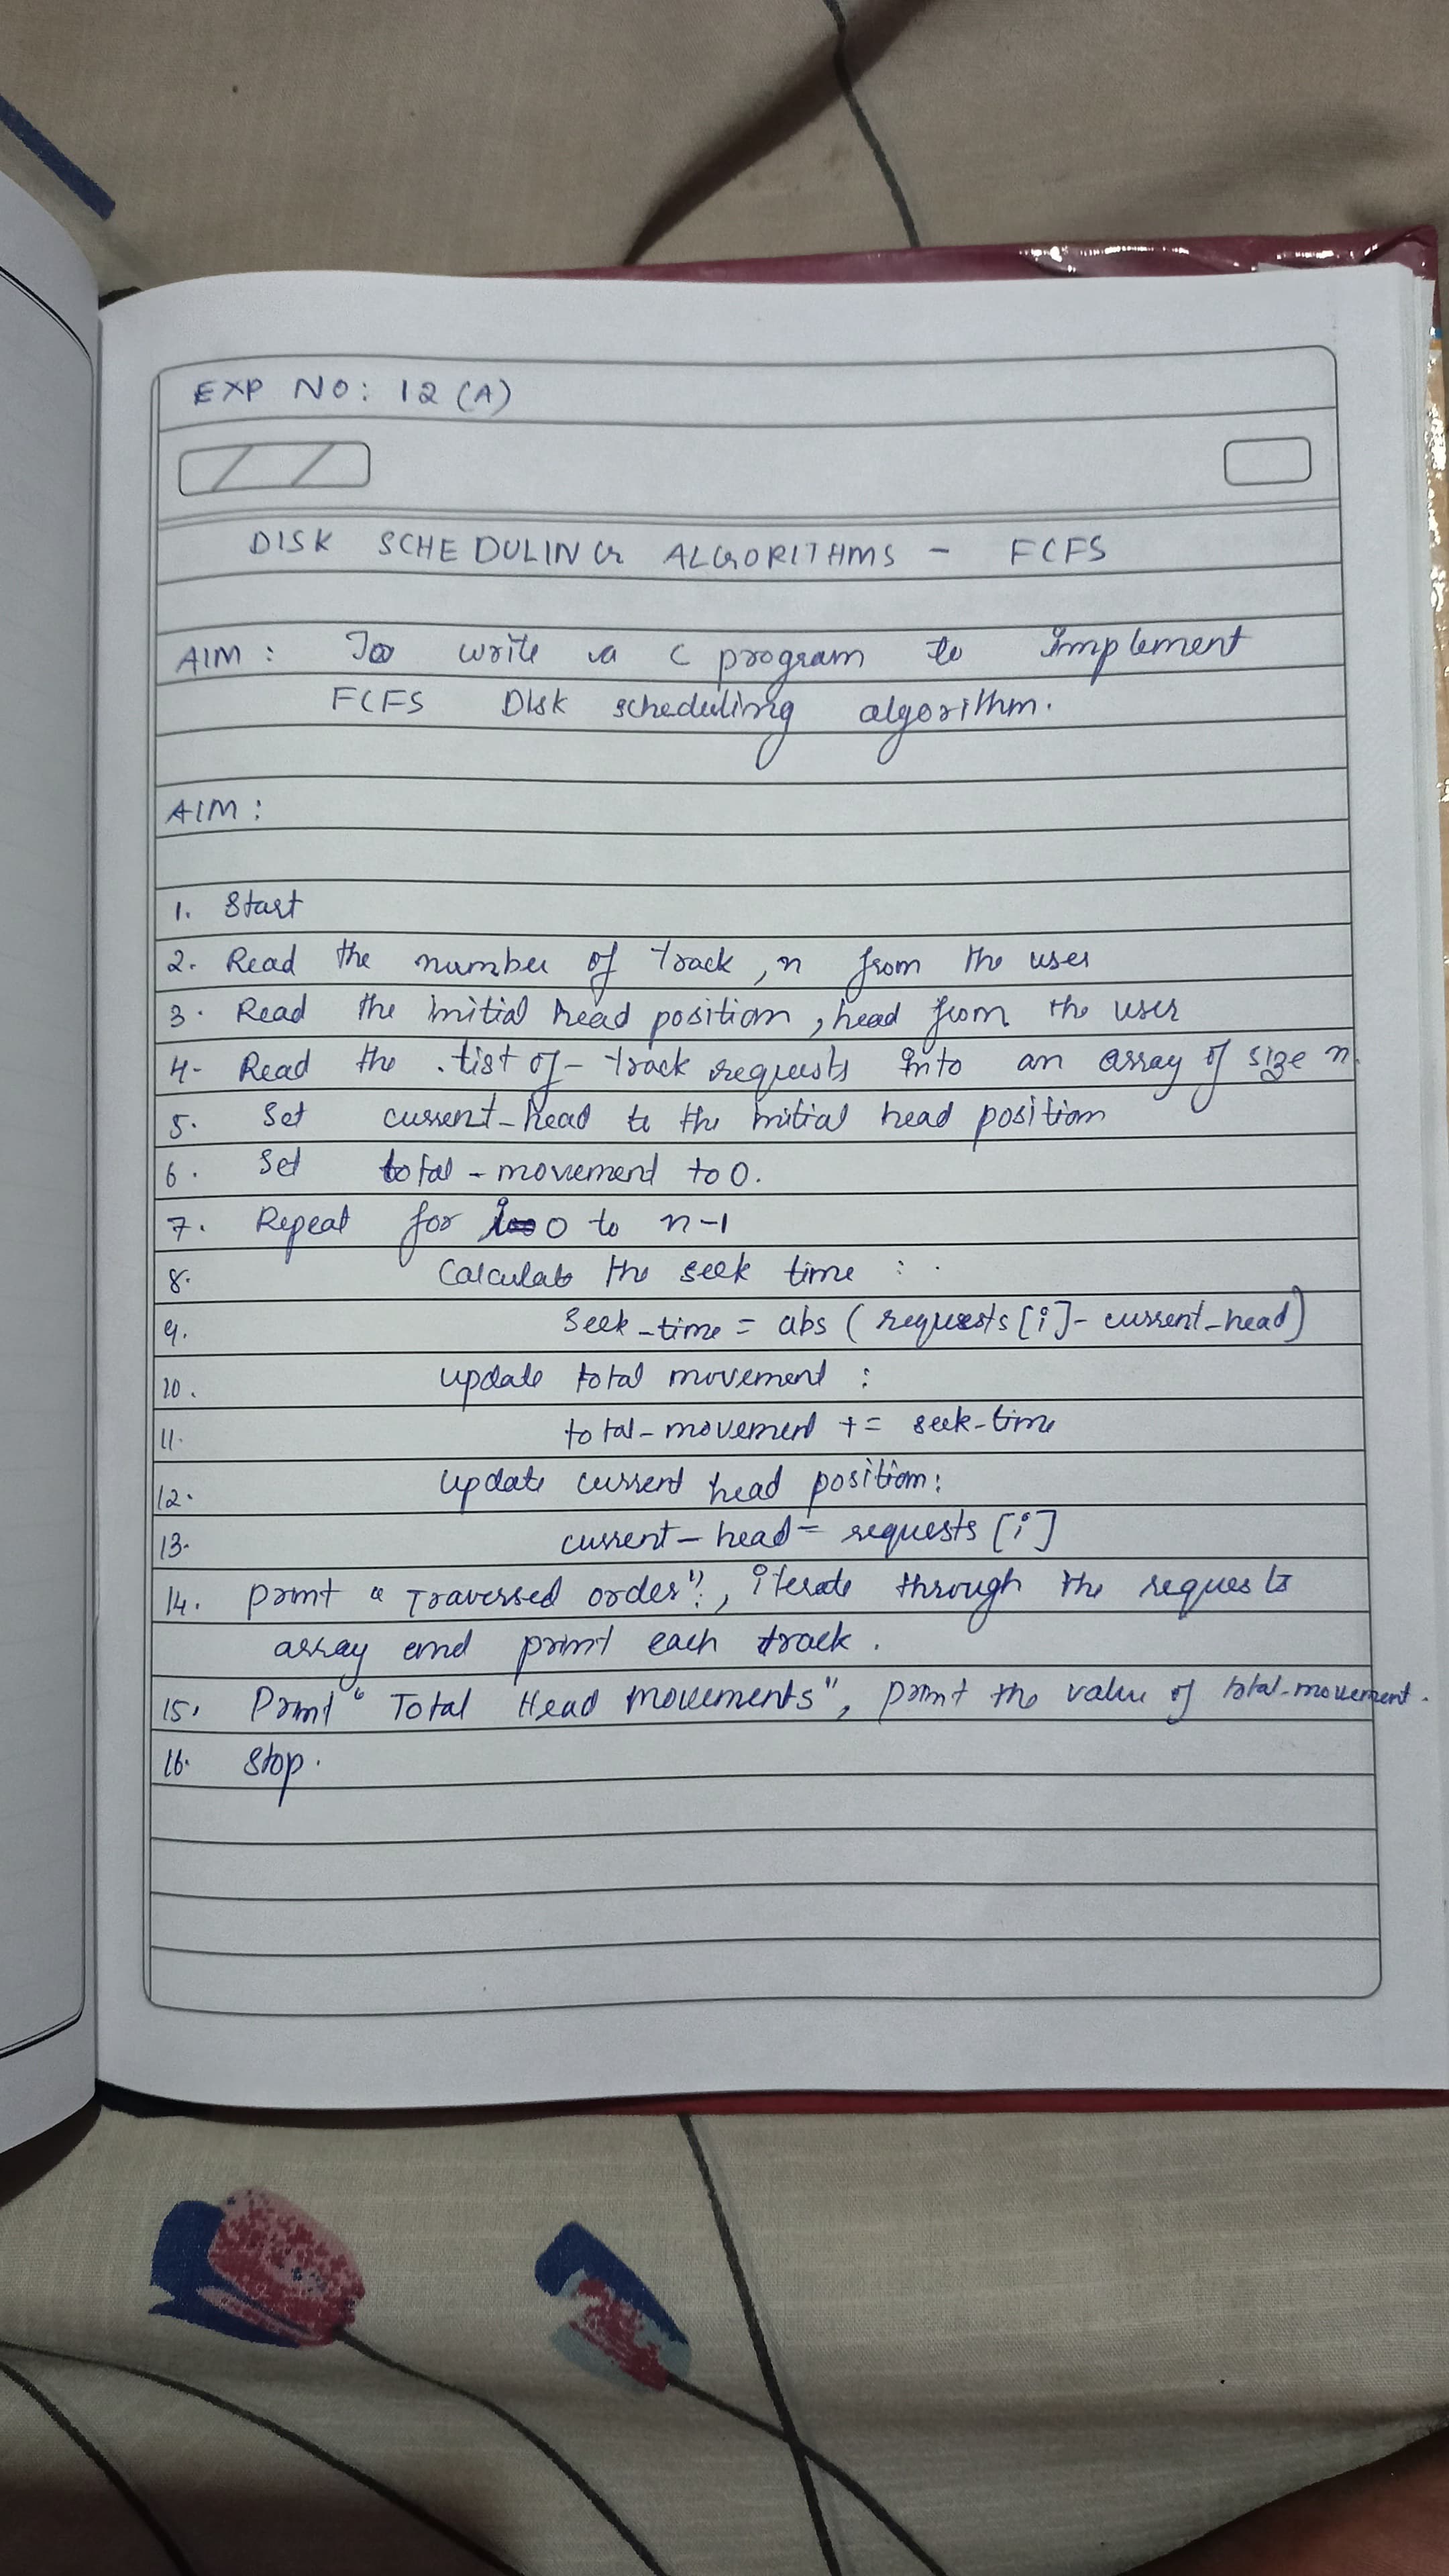 EXP NO: 12 (A)
DISK SCHEDULING ALGORITHMS - FCFS
AIM: To write a C program to implement
FCFS Disk scheduling algorithm.
AIM:
1. Start
2. Read the number of track, n from the user
3. Read the initial head position, head from the user
4. Read the list of - track requests into an array of size n.
5. Set current-head to the initial head position
6. Set total-movement to 0.
7. Repeat for i=0 to n-1
8. Calculate the seek time :
9. Seek-time = abs (requests[i]- current-head)
10. update total movement :
11. total-movement += seek-time
12. update current head position:
13. current-head= requests [i]
14. print "Traversed order", iterate through the requests
array and print each track.
15. Print "Total Head movements", print the value of total-movement.
16. Stop.